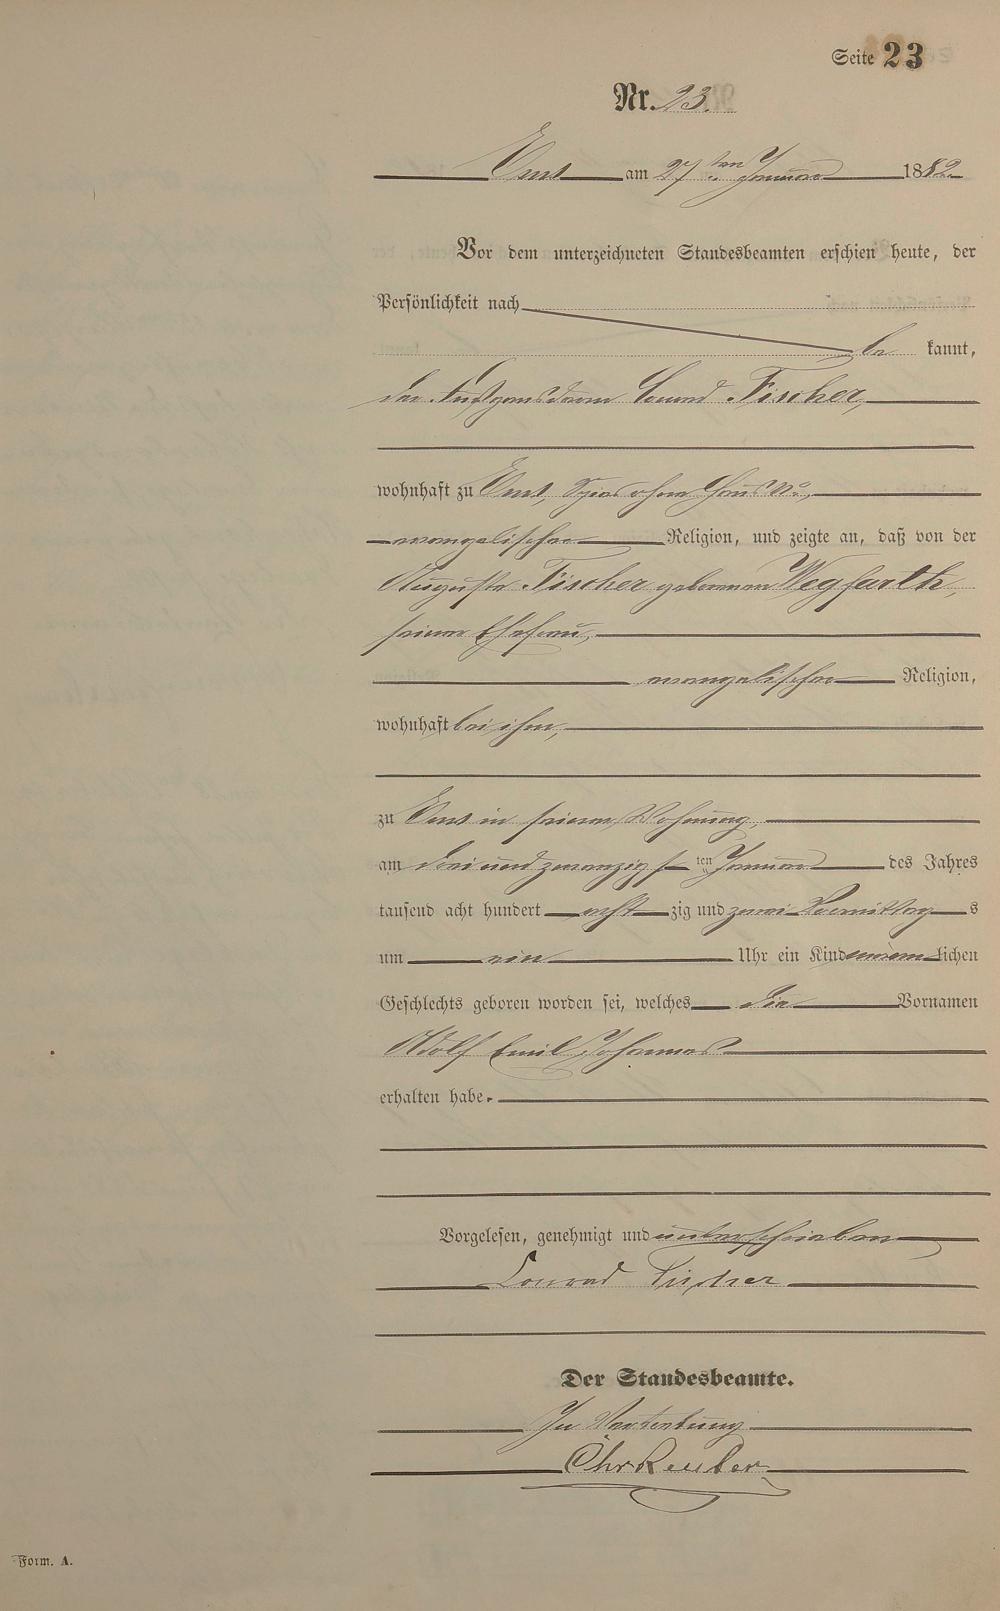 Seite 23
Nr. 23.
Ems am 27ten Januar 1882
Vor dem unterzeichneten Standesbeamten erschien heute, der
Persönlichkeit nach
be kannt,
der Fußgensdarm Conrad Fischer,
wohnhaft zu Ems, Spies ohne Haus No.,
evangelischer Religion, und zeigte an, daß von der
Auguste Fischer geborenen Wegfarth,
seiner Ehefrau,
evangelischer Religion,
wohnhaft bei ihm,
zu Ems in seiner Wohnung,
am drei und zwanzigsten Januar des Jahres
tausend acht hundert acht zig und zwei Vormittag s
um ein Uhr ein Kind männlichen
Geschlechts geboren worden sei, welches die Vornamen
Adolf Emil Johannes
erhalten habe.
Vorgelesen, genehmigt und unterschrieben
Conrad Fischer
Der Standesbeamte.
In Vertretung
Chr Reuter
Form. A.